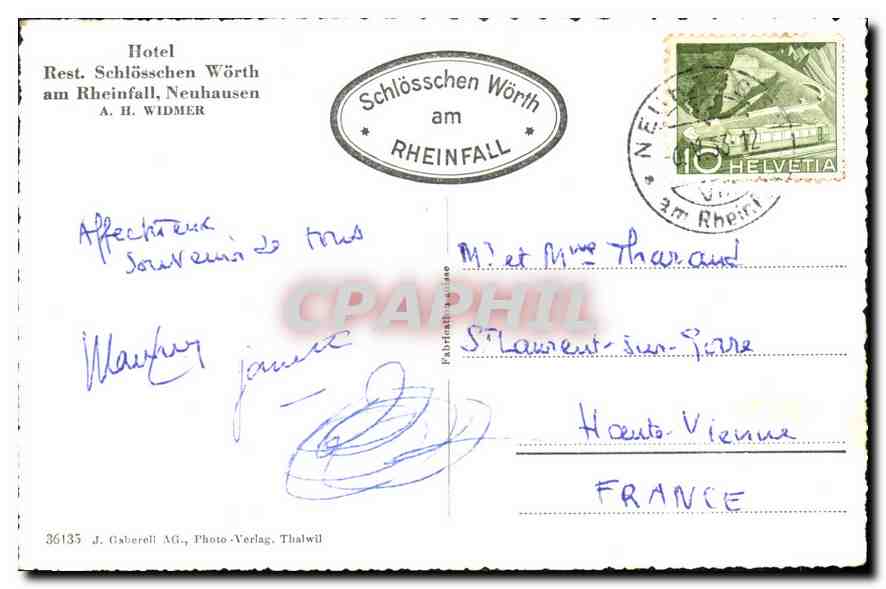 Hotel
Rest. Schlösschen Wörth
am Rheinfall, Neuhausen
A. H. WIDMER
Schlösschen Wörth
am
* RHEINFALL *
10 HELVETIA
am Rheinf
Affectueux
souvenir de tous
Janette
CPAPHIL
Fabrication suisse
Mr et Mme Tharaud
St Laurent-sur-Gorre
Haute-Vienne
FRANCE
36135 J. Gaberell AG., Photo-Verlag, Thalwil